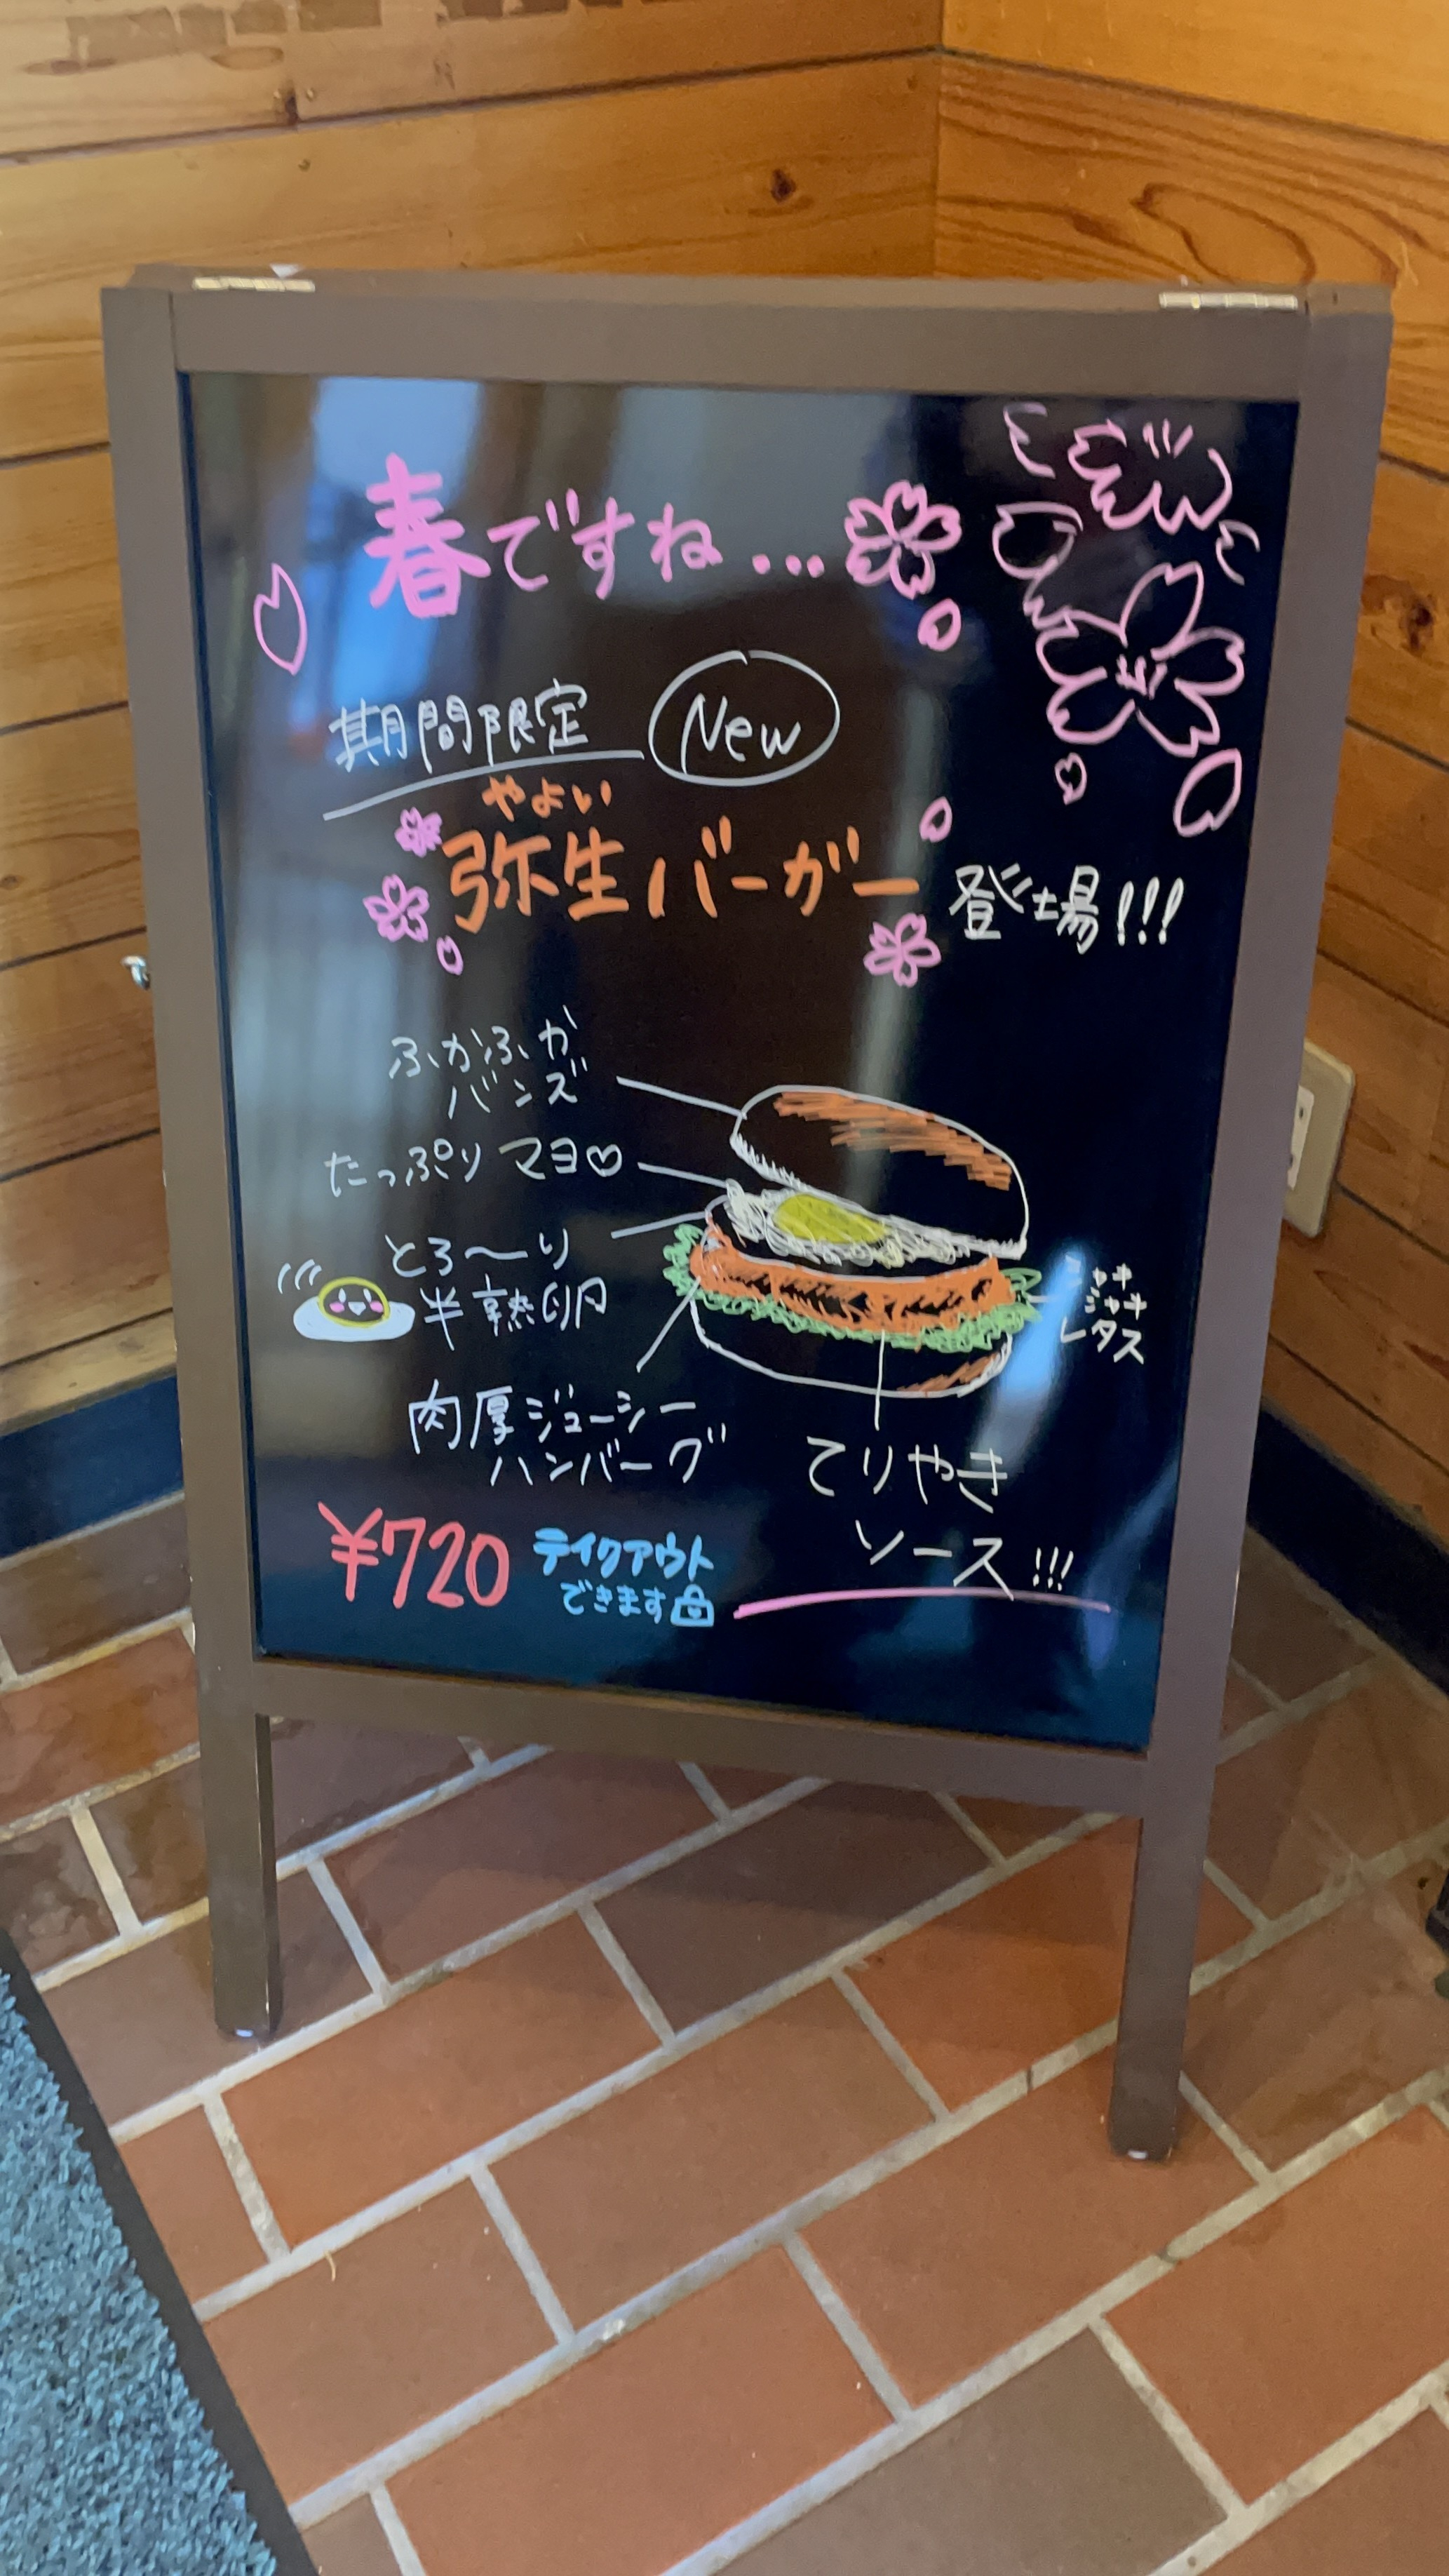 春ですね...
期間限定 New
やよい
弥生バーガー 登場!!!
ふかふか
バンズ
たっぷりマヨ♡
とろ〜り
半熟卵
シャキ
シャキ
レタス
肉厚ジューシー
ハンバーグ
てりやき
ソース!!!
¥720
テイクアウト
できます